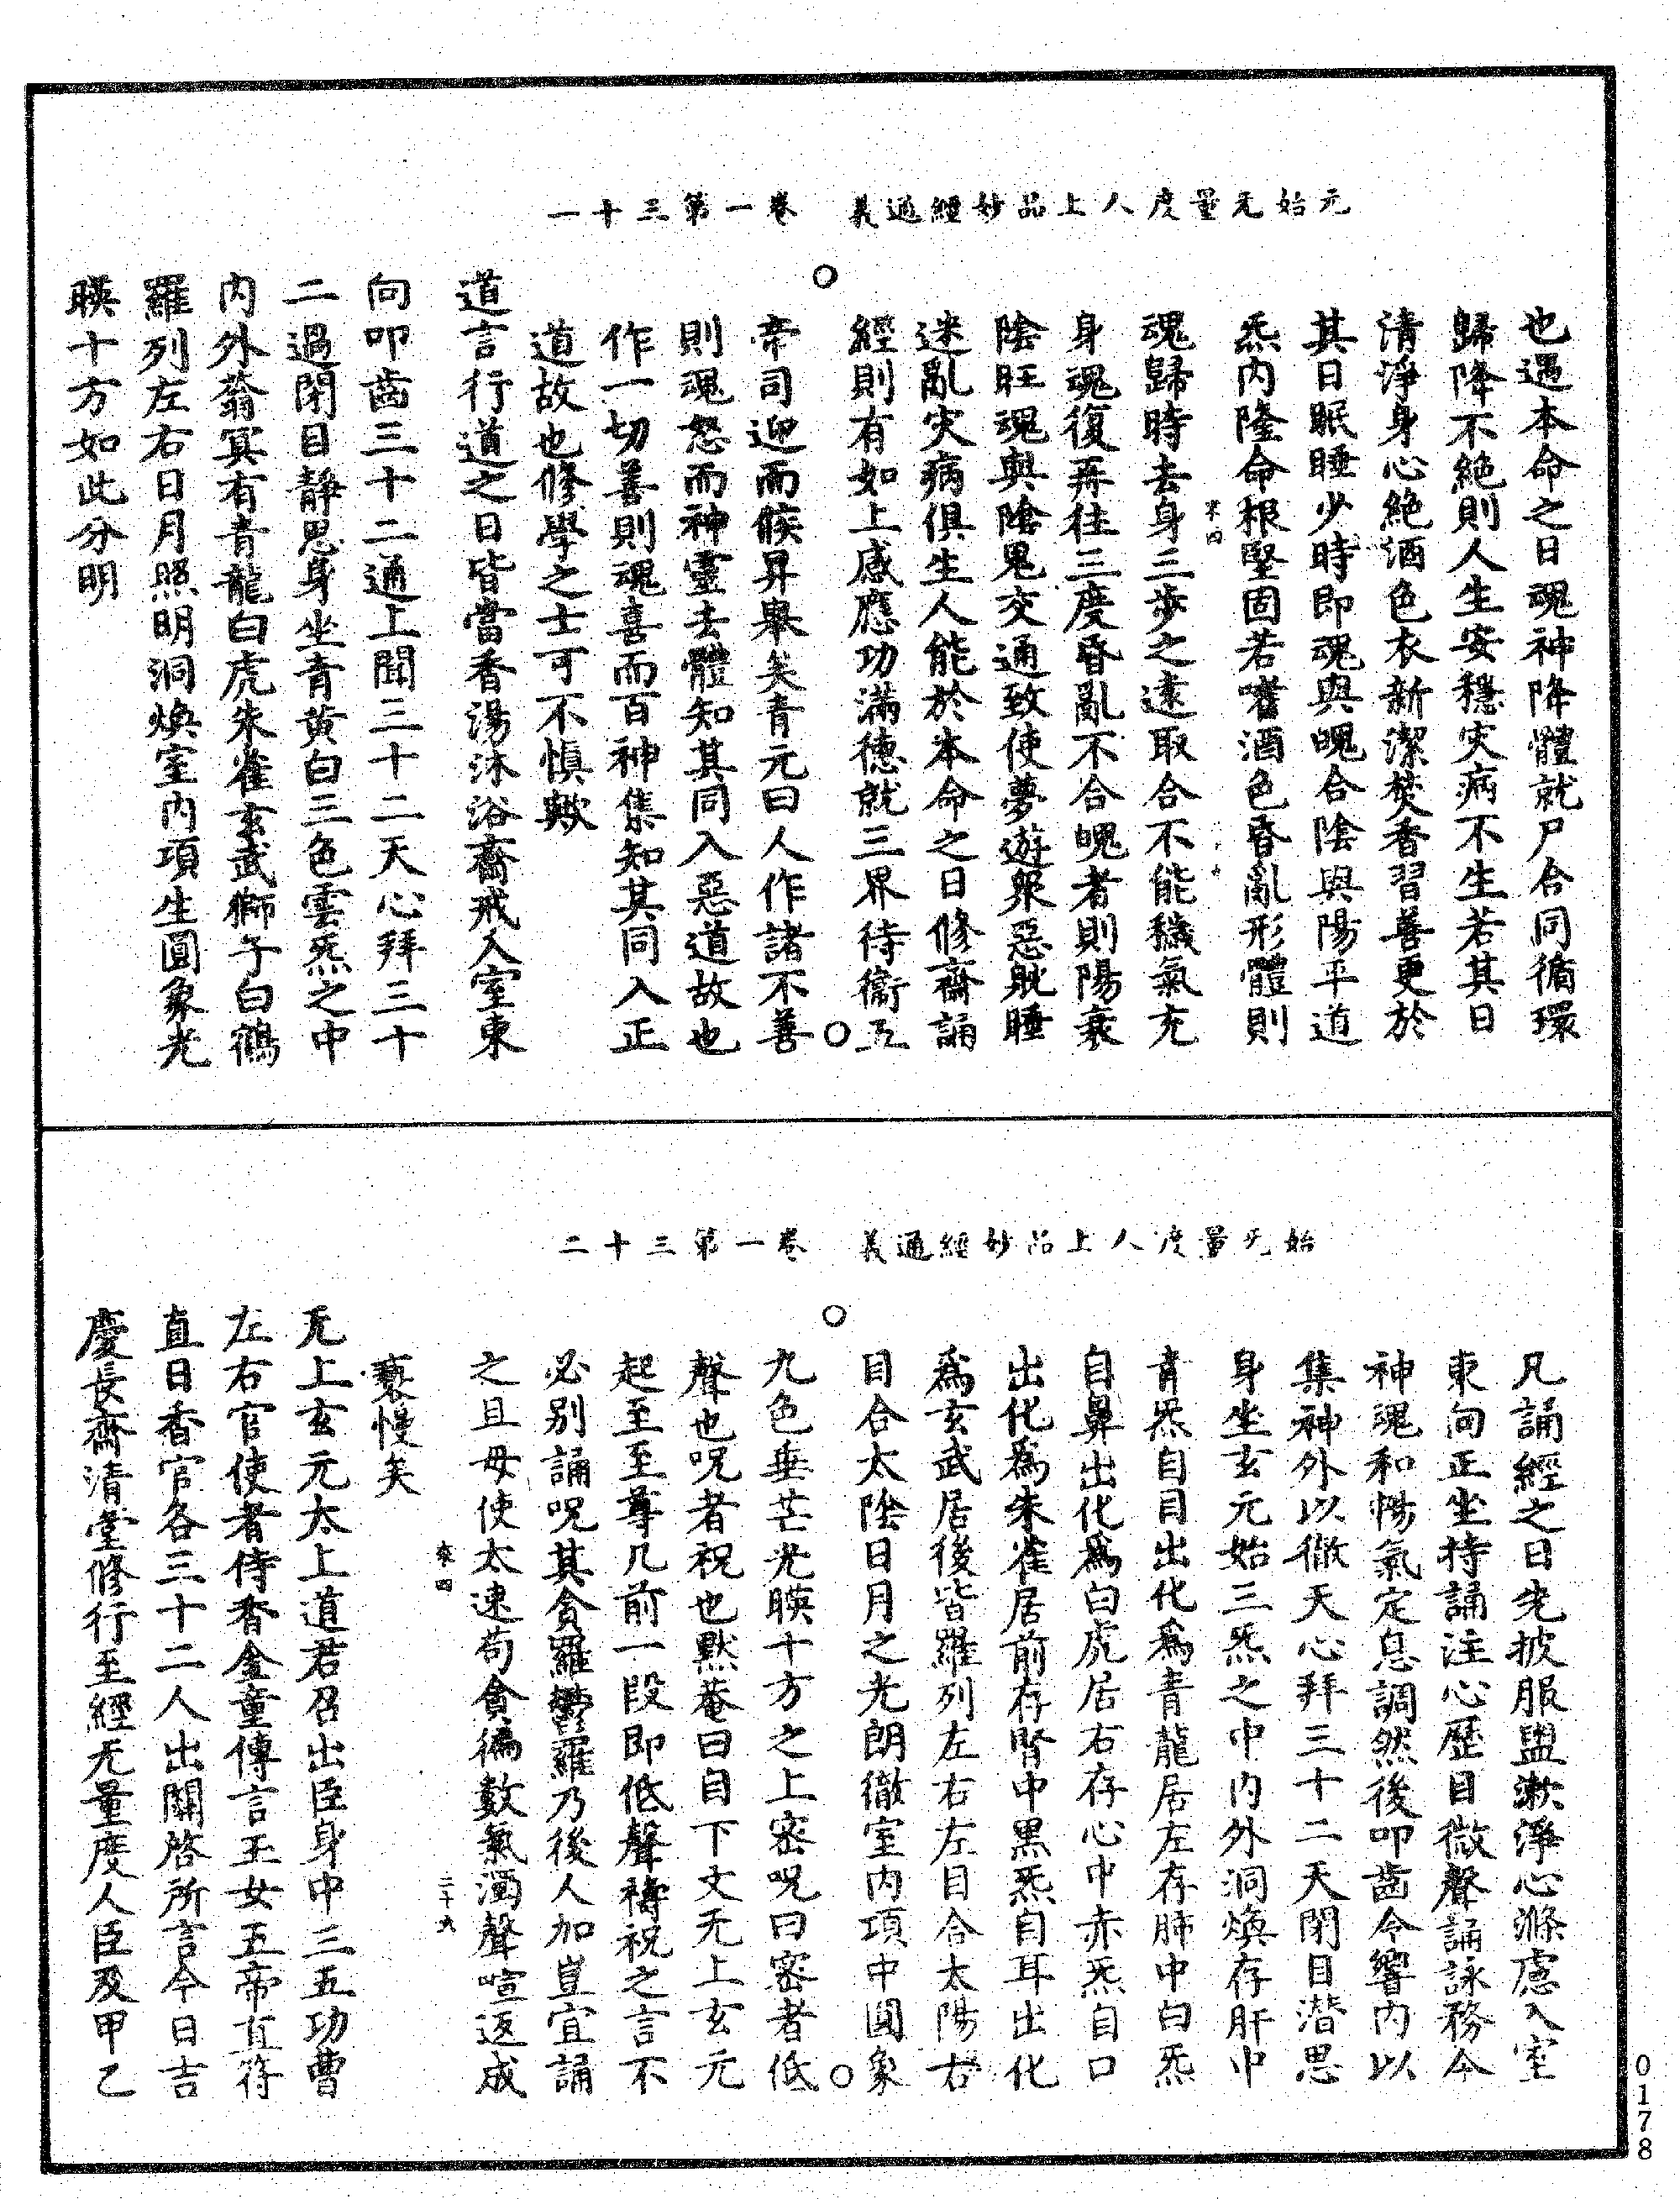 元始无量度人上品妙經通義　卷一第三十一
也遇本命之日魂神降體就尸合同循環
歸降不絶則人生安穩灾病不生若其日
清淨身心絶酒色衣新潔焚香習善更於
其日眠睡少時即魂與魄合陰與陽平道
炁内隆命根堅固若嗜酒色昏亂形體則
魂歸時去身三步之遠取合不能穢氣充
身魂復再往三度昏亂不合魄者則陽衰
陰旺魂與陰鬼交通致使夢遊衆惡耽睡
迷亂灾病俱生人能於本命之日修齋誦
經則有如上感應功滿德就三界待衞五
帝司迎而候昇舉矣青元曰人作諸不善
則魂怒而神靈去體知其同入惡道故也
作一切善則魂喜而百神集知其同入正
道故也修學之士可不慎歟
道言行道之日皆當香湯沐浴齋戒入室東
向叩齒三十二通上聞三十二天心拜三十
二過閉目靜思身坐青黄白三色雲炁之中
内外蓊冥有青龍白虎朱雀玄武獅子白鶴
羅列左右日月照明洞煥室内項生圓象光
暎十方如此分明
始无量度人上品妙經通義　卷一第三十二
凡誦經之日先披服盥漱淨心滌慮入室
東向正坐持誦注心歷目微聲誦詠務令
神魂和暢氣定息調然後叩齒令響内以
集神外以徹天心拜三十二天閉目潜思
身坐玄元始三炁之中内外洞煥存肝中
青炁自目出化爲青龍居左存肺中白炁
自鼻出化爲白虎居右存心中赤炁自口
出化爲朱雀居前存腎中黑炁自耳出化
爲玄武居後皆羅列左右左目合太陽右
目合太陰日月之光朗徹室内項中圓象
九色垂芒光暎十方之上密呪曰密者低
聲也呪者祝也默菴曰自下文无上玄元
起至至尊几前一段即低聲禱祝之言不
必别誦呪其貪羅鬱羅乃後人加豈宜誦
之且毋使太速苟貪徧數氣濁聲喧返成
褻慢矣
无上玄元太上道君召出臣身中三五功曹
左右官使者侍香金童傳言玉女五帝直符
直日香官各三十二人出關啓所言今日吉
慶長齋清堂修行至經无量度人臣及甲乙
0178